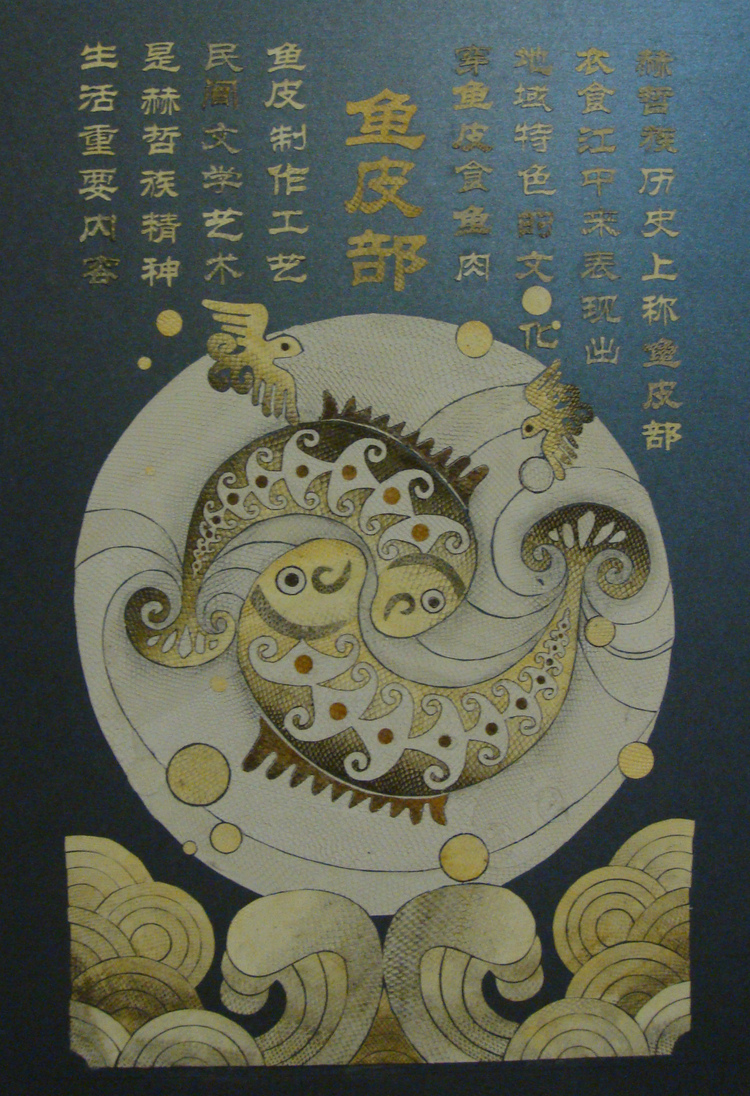 赫哲族历史上称鱼皮部
衣食江中来表现出
地域特色的文化
穿鱼皮食鱼肉
鱼皮部
鱼皮制作工艺
民间文学艺术
是赫哲族精神
生活重要内容